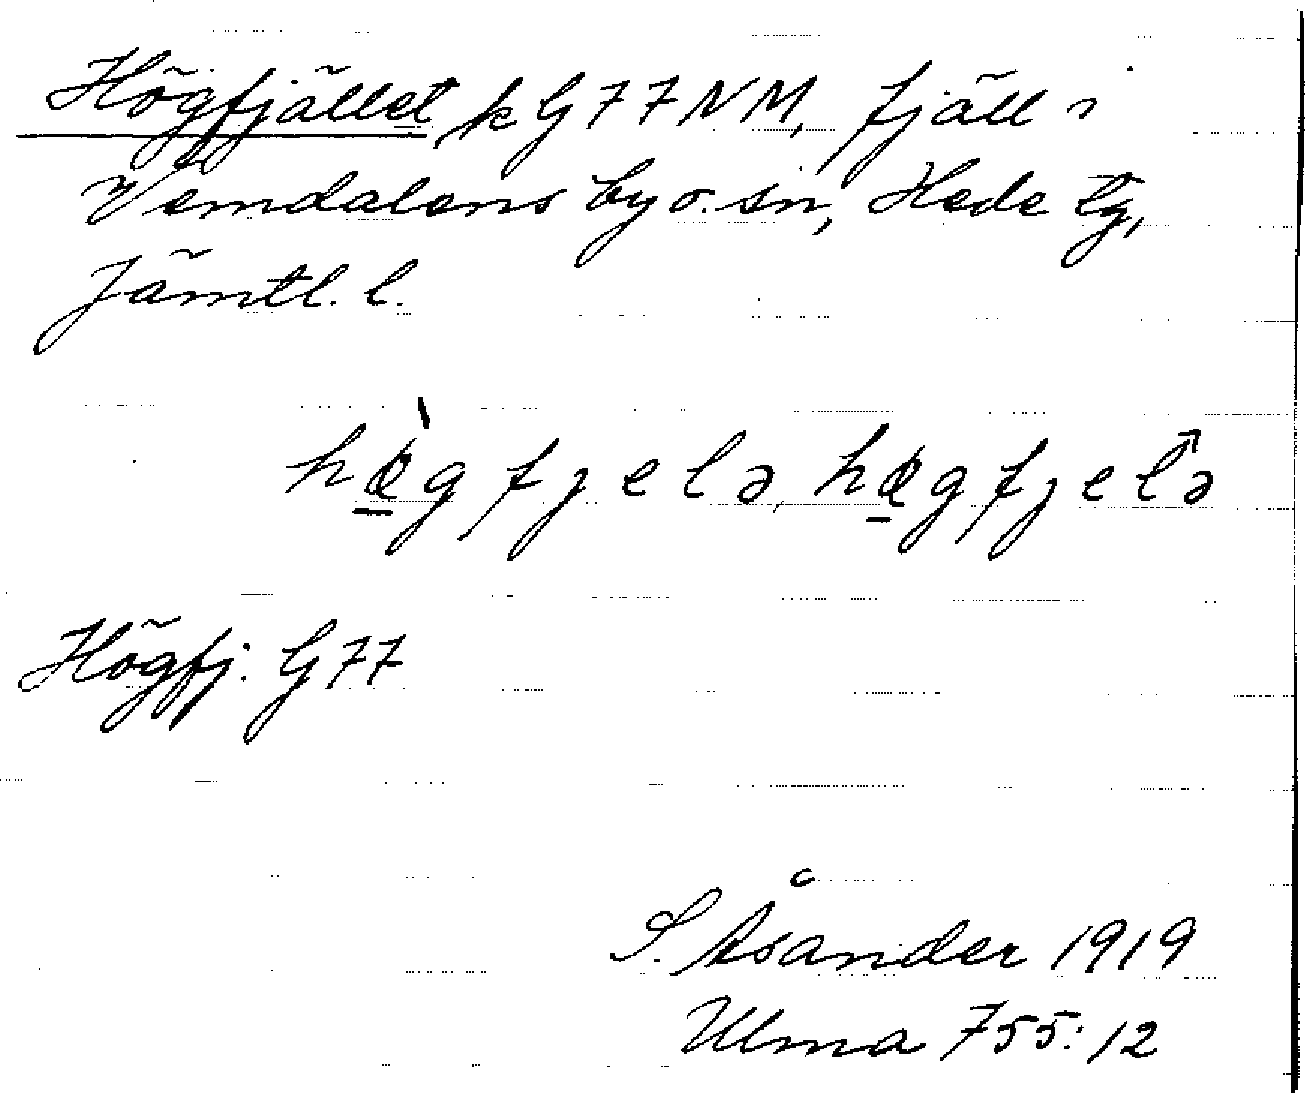 Högfjället k G77NM, fjäll i
Vemdalens by o. sn, Hede tg,
Jämtl. l.
hæ̀gfjelə, hægfjelə
Högfj. G77
S. Åsander 1919
Ulma 755:12